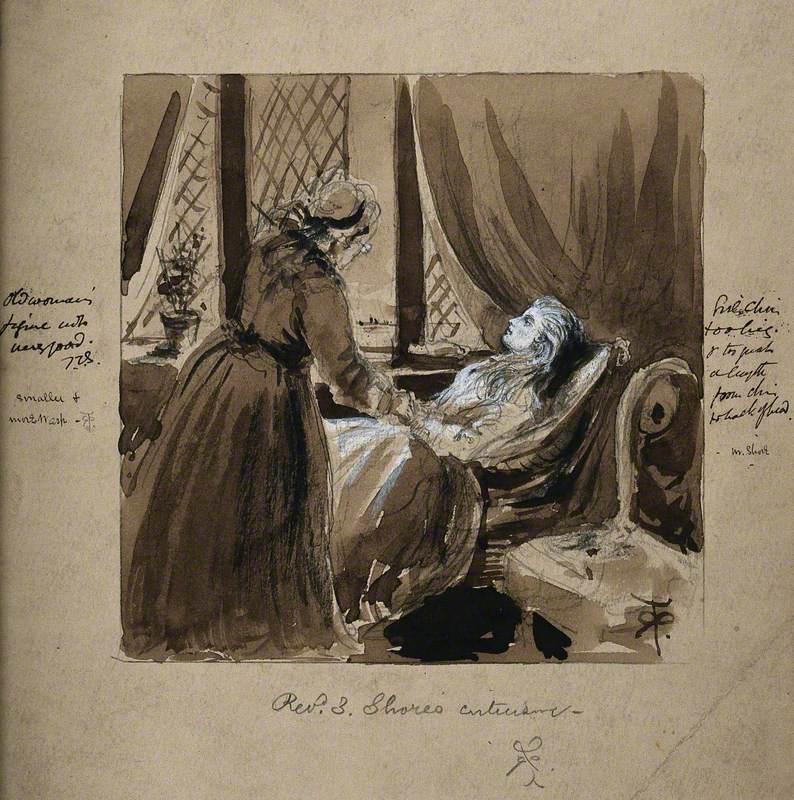 Old woman's
figure not
very good.
smaller &
more
Girl. Chin
too big.
& too much
a length
from chin
to back of head.
- M. Shore
Rev.d J. Shore's criticisms -